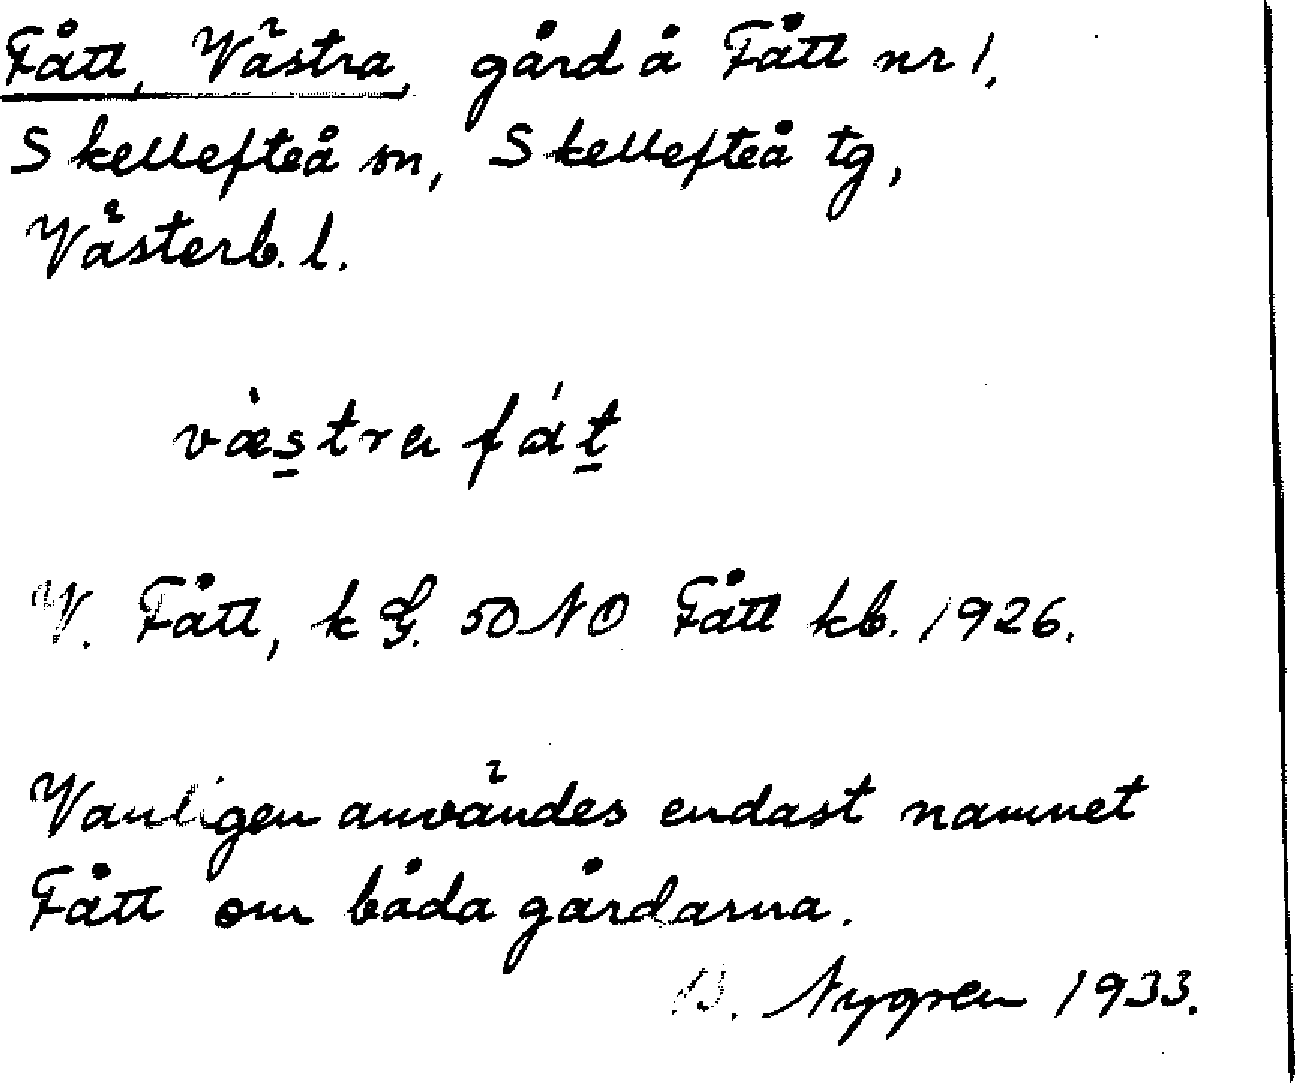 Fått, Västra, gård å Fått nr 1.
Skellefteå sn, Skellefteå tg,
Västerb. l.
væ̀stra fát
V. Fått, k G. 50 NO Fått kb. 1926.
Vanligen användes endast namnet
Fått om båda gårdarna.
B. Nygren 1933.